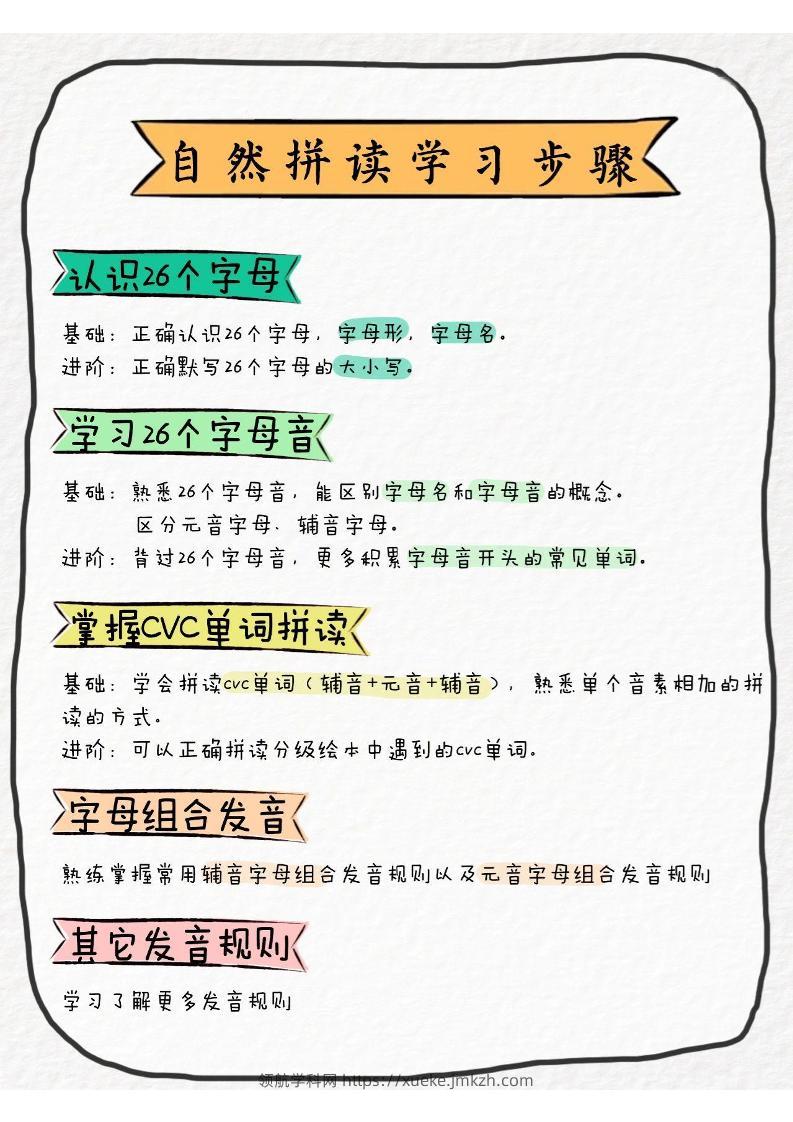 自然拼读学习步骤
认识26个字母
基础：正确认识26个字母，字母形，字母名。
进阶：正确默写26个字母的大小写。
学习26个字母音
基础：熟悉26个字母音，能区别字母名和字母音的概念。
区分元音字母、辅音字母。
进阶：背过26个字母音，更多积累字母音开头的常见单词。
掌握CVC单词拼读
基础：学会拼读cvc单词（辅音+元音+辅音），熟悉单个音素相加的拼
读的方式。
进阶：可以正确拼读分级绘本中遇到的cvc单词。
字母组合发音
熟练掌握常用辅音字母组合发音规则以及元音字母组合发音规则
其它发音规则
学习了解更多发音规则
领航学科网 https://xueke.jmkzh.com